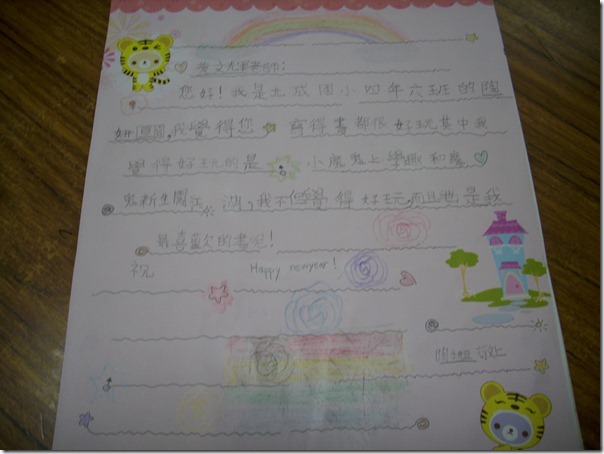 老師:
您好!我是北成國小四年六班的陶
妍,我覺得您寫得書都很好玩其中我
覺得好玩的是 小魔鬼上學趣和魔
鬼新生闖江湖,我不但覺得好玩,而且也是我
最喜歡的書呢!
祝 Happy newyear!
敬上